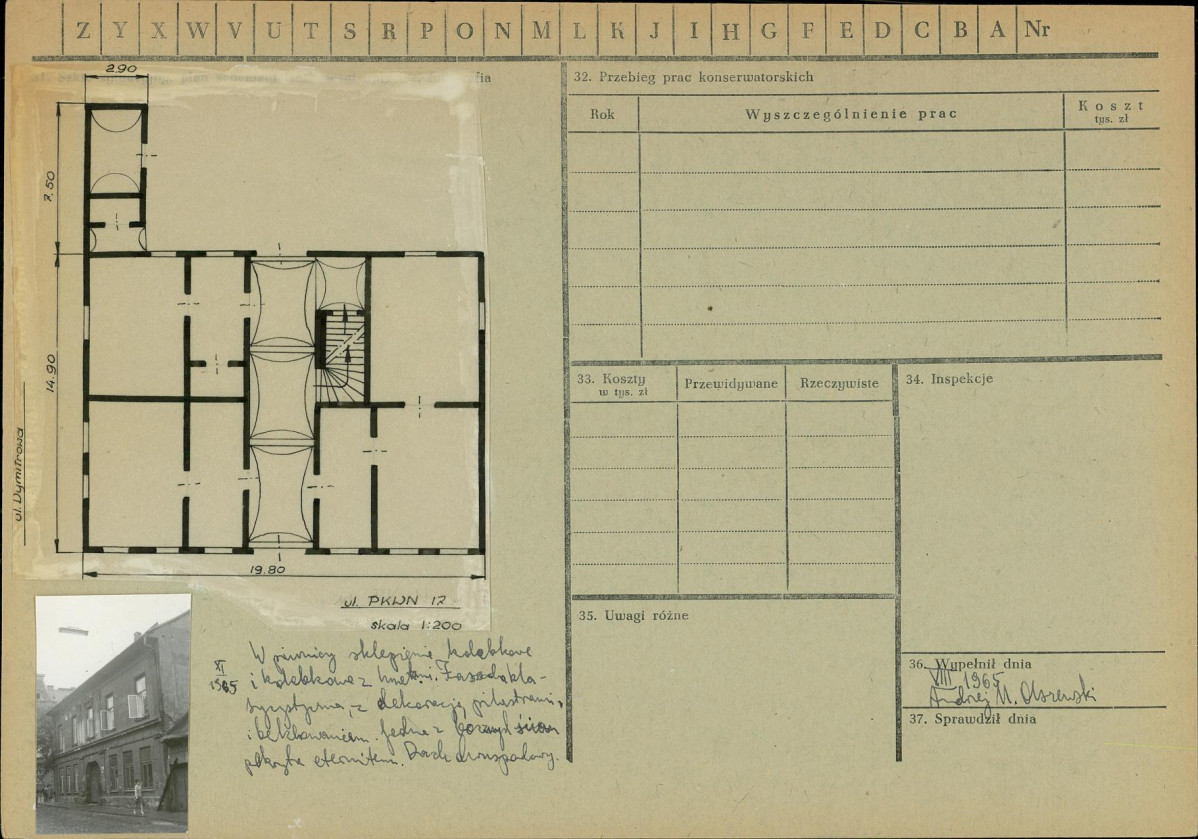 Z Y X W V U T S R P O N M L K J I H G F E D C B A Nr
fia
2.90
7.50
14.90
ul. Dymitrowa
19.80
ul. PKWN 17
skala 1:200
XI
1965
W piwnicy sklepienie kolebkowe
i kolebkowe z lunetami. Fasada kla-
sycystyczna, z dekoracją pilastrami,
i belkowaniem. Jedna z bocznych ścian
pokryta eternitem. Dach dwuspadowy.
32. Przebieg prac konserwatorskich
Rok
Wyszczególnienie prac
Koszt
tys. zł
33. Koszty
w tys. zł
Przewidywane
Rzeczywiste
34. Inspekcje
35. Uwagi różne
36. Wypełnił dnia
VIII 1965
Andrzej M. Olszewski
37. Sprawdził dnia